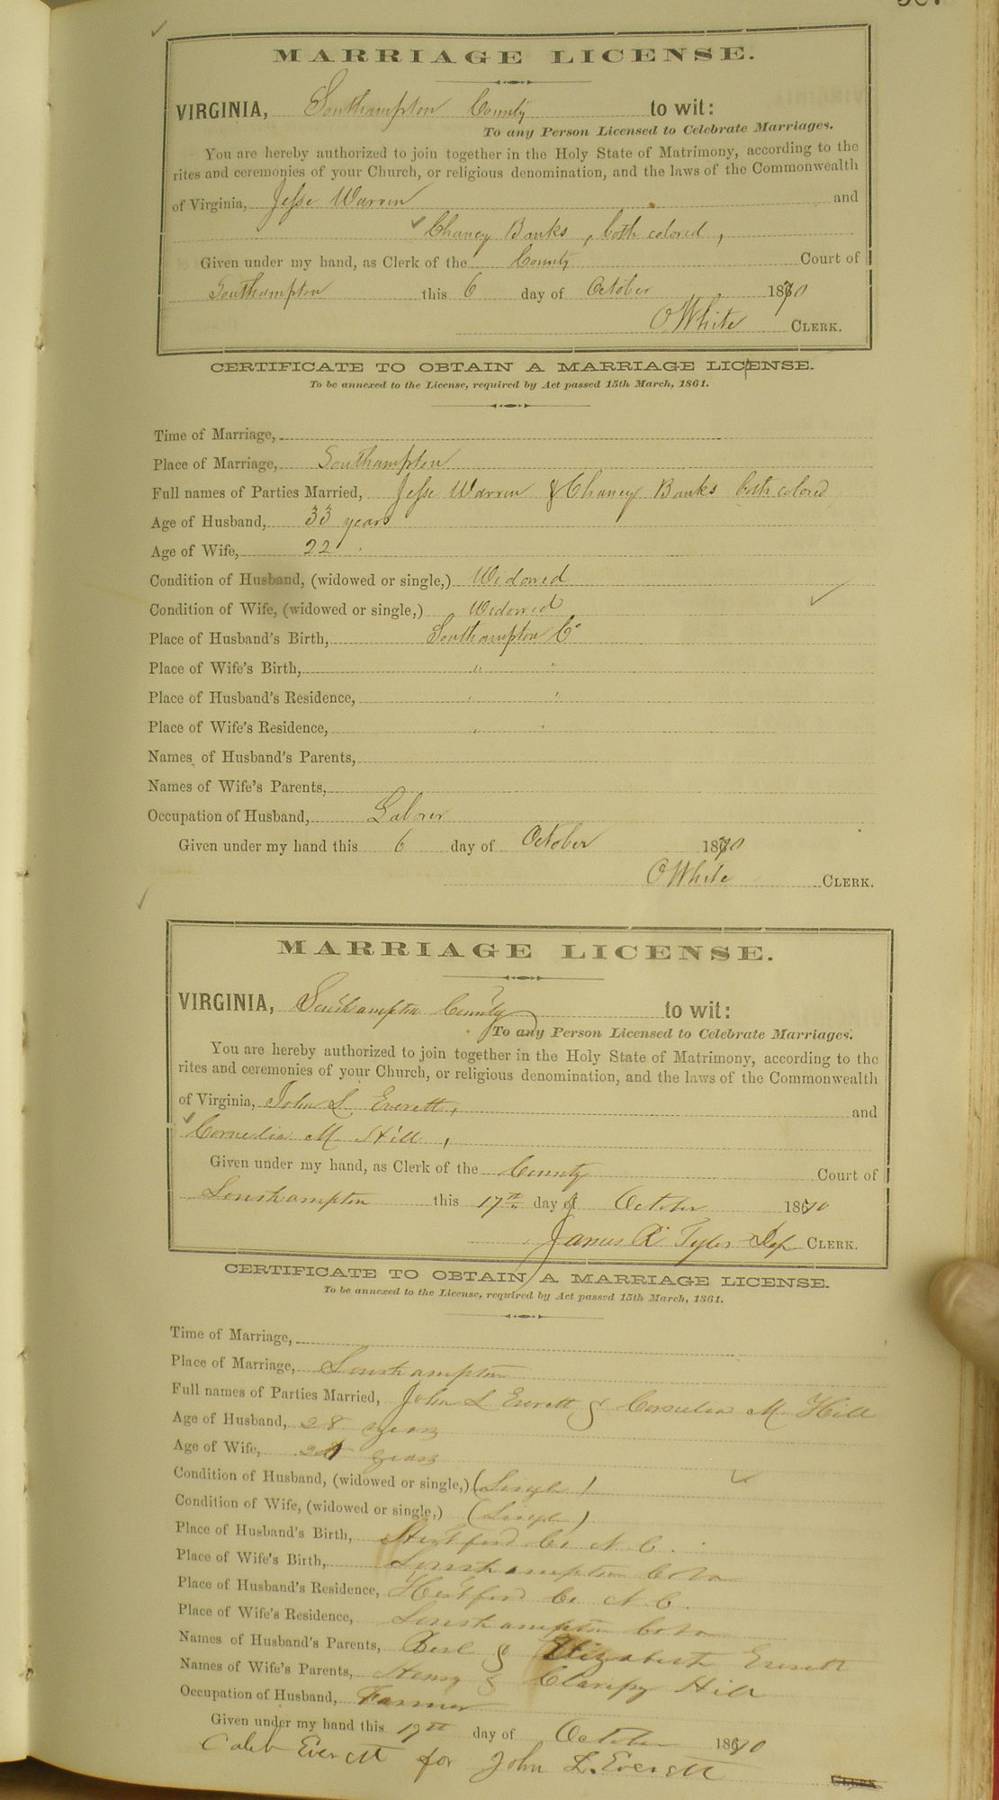 MARRIAGE LICENSE.
VIRGINIA, Southampton County to wit:
To any Person Licensed to Celebrate Marriages.
You are hereby authorized to join together in the Holy State of Matrimony, according to the
rites and ceremonies of your Church, or religious denomination, and the laws of the Commonwealth
of Virginia, Jesse Warren and
Chaney Banks, both colored,
Given under my hand, as Clerk of the County Court of
Southampton this 6 day of October 1870
O White CLERK.
CERTIFICATE TO OBTAIN A MARRIAGE LICENSE.
To be annexed to the License, required by Act passed 15th March, 1861.
Time of Marriage,
Place of Marriage, Southampton
Full names of Parties Married, Jesse Warren & Chaney Banks both colored
Age of Husband, 33 years
Age of Wife, 22 "
Condition of Husband, (widowed or single,) Widowed
Condition of Wife, (widowed or single,) Widowed
Place of Husband's Birth, Southampton Co
Place of Wife's Birth, " "
Place of Husband's Residence, " "
Place of Wife's Residence, " "
Names of Husband's Parents,
Names of Wife's Parents,
Occupation of Husband, Laborer
Given under my hand this 6 day of October 1870
O White CLERK.
MARRIAGE LICENSE.
VIRGINIA, Southampton County to wit:
To any Person Licensed to Celebrate Marriages.
You are hereby authorized to join together in the Holy State of Matrimony, according to the
rites and ceremonies of your Church, or religious denomination, and the laws of the Commonwealth
of Virginia, John L. Everett, and
Cornelia M Hill,
Given under my hand, as Clerk of the County Court of
Southampton this 17th day of October 1870
James R Tyler Dep CLERK.
CERTIFICATE TO OBTAIN A MARRIAGE LICENSE.
To be annexed to the License, required by Act passed 15th March, 1861.
Time of Marriage,
Place of Marriage, Southampton
Full names of Parties Married, John L Everett & Cornelia M Hill
Age of Husband, 28 years
Age of Wife, years
Condition of Husband, (widowed or single,) (Single)
Condition of Wife, (widowed or single,) (Single)
Place of Husband's Birth, Hertford Co N.C.
Place of Wife's Birth, Southampton Co Va
Place of Husband's Residence, Hertford Co N.C.
Place of Wife's Residence, Southampton Co Va
Names of Husband's Parents, & Elizabeth Everett
Names of Wife's Parents, Henry & Hill
Occupation of Husband, Farmer
Given under my hand this 17th day of October 1870
Caleb Everett for John L. Everett
CLERK